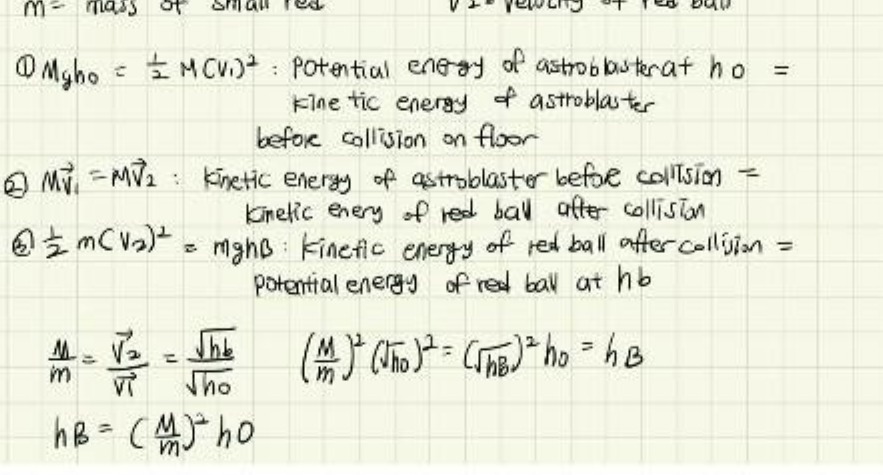 m = mass of small red V2 = velocity of red ball
① Mgho = 1/2 M(V1)² : Potential energy of astroblaster at ho =
kinetic energy of astroblaster
before collision on floor
② MV⃗1 = MV⃗2 : kinetic energy of astroblaster before collision =
kinetic enery of red ball after collision
③ 1/2 m(V2)² = mghB : kinetic energy of red ball after collision =
potential energy of red ball at hb
M/m = V⃗2/V⃗1 = √hb/√ho (M/m)² (√ho)² = (√hB)² ho = hB
hB = (M/m)² hO